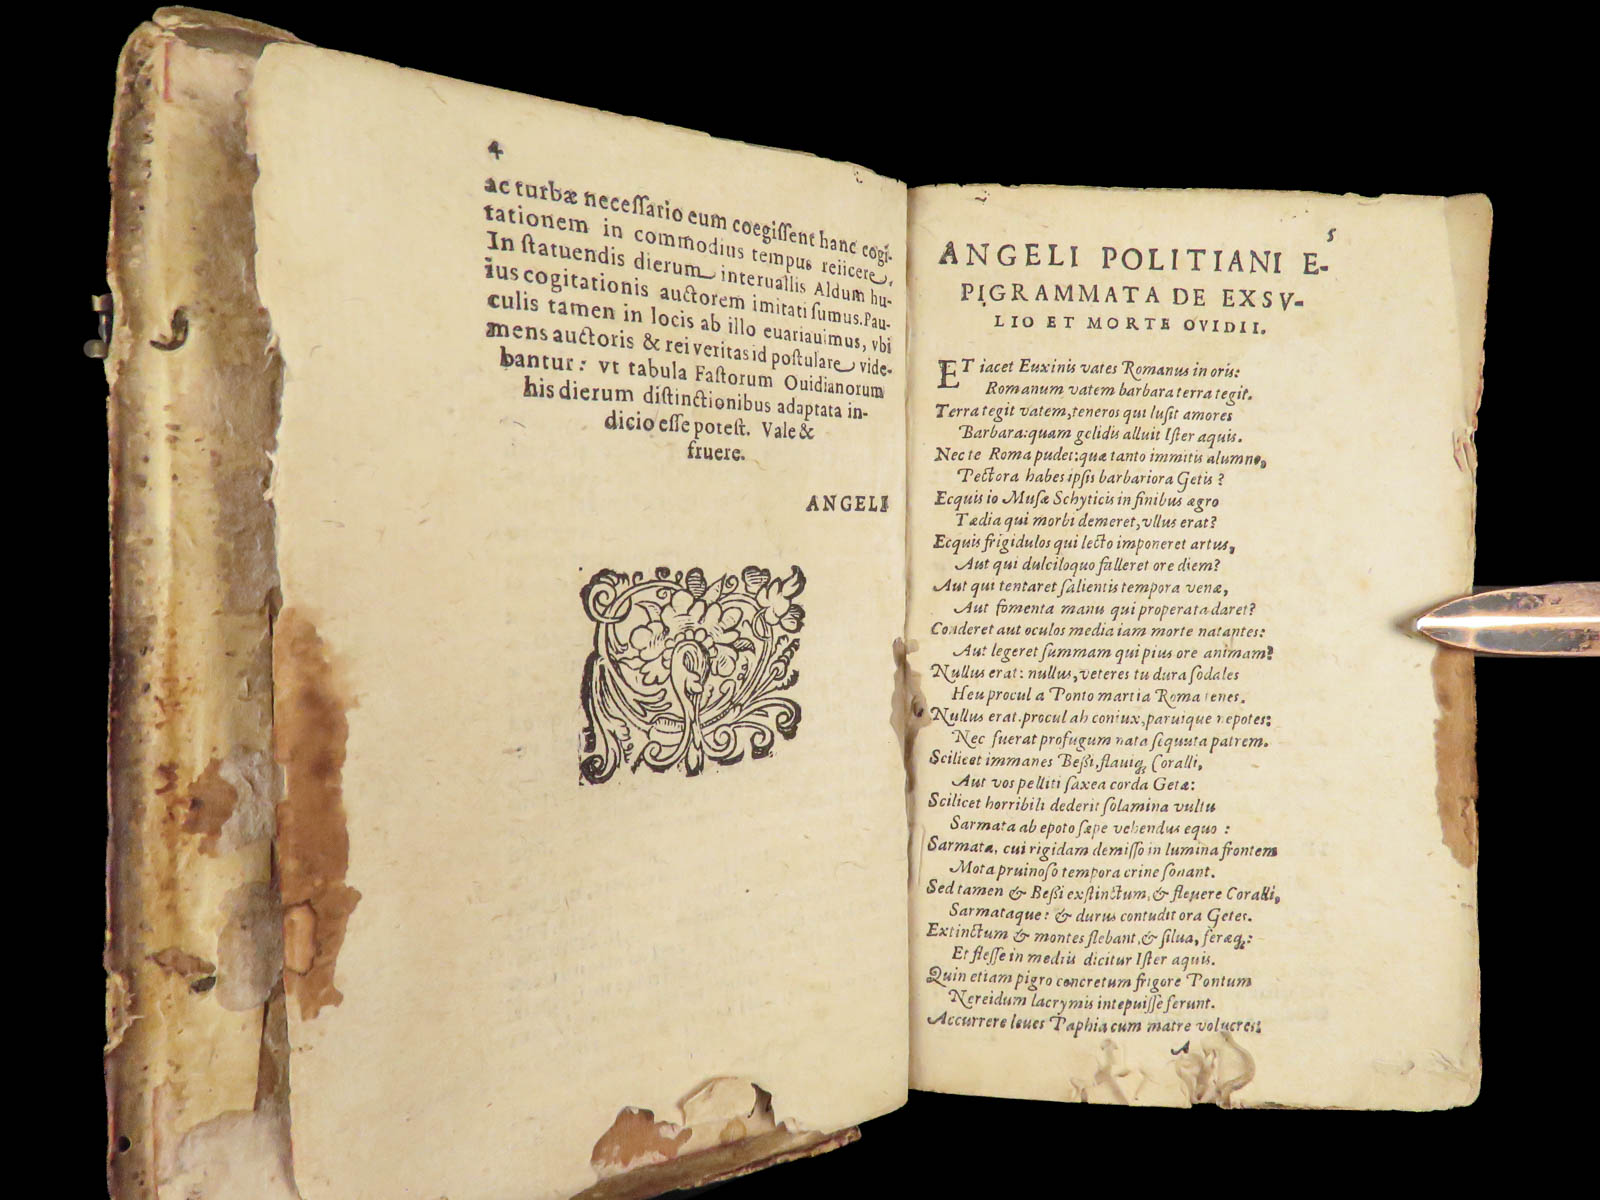 4
ac turbæ necessario eum coegissent hanc cogi-
tationem in commodius tempus reiicere.
In statuendis dierum interuallis Aldum hu-
ius cogitationis auctorem imitati sumus. Pau-
culis tamen in locis ab illo euariauimus, vbi
mens auctoris & rei veritas id postulare vide-
bantur: vt tabula Fastorum Ouidianorum
his dierum distinctionibus adaptata in-
dicio esse potest. Vale &
fruere.
ANGELI
5
ANGELI POLITIANI E-
PIGRAMMATA DE EXSV-
LIO ET MORTE OVIDII.
ET iacet Euxinis vates Romanus in oris:
Romanum vatem barbara terra tegit.
Terra tegit vatem, teneros qui lusit amores
Barbara: quam gelidis alluit Ister aquis.
Nec te Roma pudet: quæ tanto immitis alumno,
Pectora habes ipsis barbariora Getis?
Ecquis io Musæ Schyticis in finibus ægro
Tædia qui morbi demeret, vllus erat?
Ecquis frigidulos qui lecto imponeret artus,
Aut qui dulciloquo falleret ore diem?
Aut qui tentaret salientis tempora venæ,
Aut fomenta manu qui properata daret?
Conderet aut oculos media iam morte natantes:
Aut legeret summam qui pius ore animam?
Nullus erat: nullus, veteres tu dura sodales
Heu procul a Ponto martia Roma tenes.
Nullus erat. procul ah coniux, paruique nepotes:
Nec fuerat profugum nata sequuta patrem.
Scilicet immanes Bessi, flauiq; Coralli,
Aut vos pelliti saxea corda Getæ:
Scilicet horribili dederit solamina vultu
Sarmata ab epoto sæpe vehendus equo:
Sarmata, cui rigidam demisso in lumina frontem
Mota pruinoso tempora crine sonant.
Sed tamen & Bessi exstinctum, & fleuere Coralli,
Sarmataque: & durus contudit ora Getes.
Extinctum & montes flebant, & silua, feræq;:
Et flesse in mediis dicitur Ister aquis.
Quin etiam pigro concretum frigore Pontum
Nereidum lacrymis intepuisse ferunt.
Accurrere leues Paphia cum matre volucres:
A